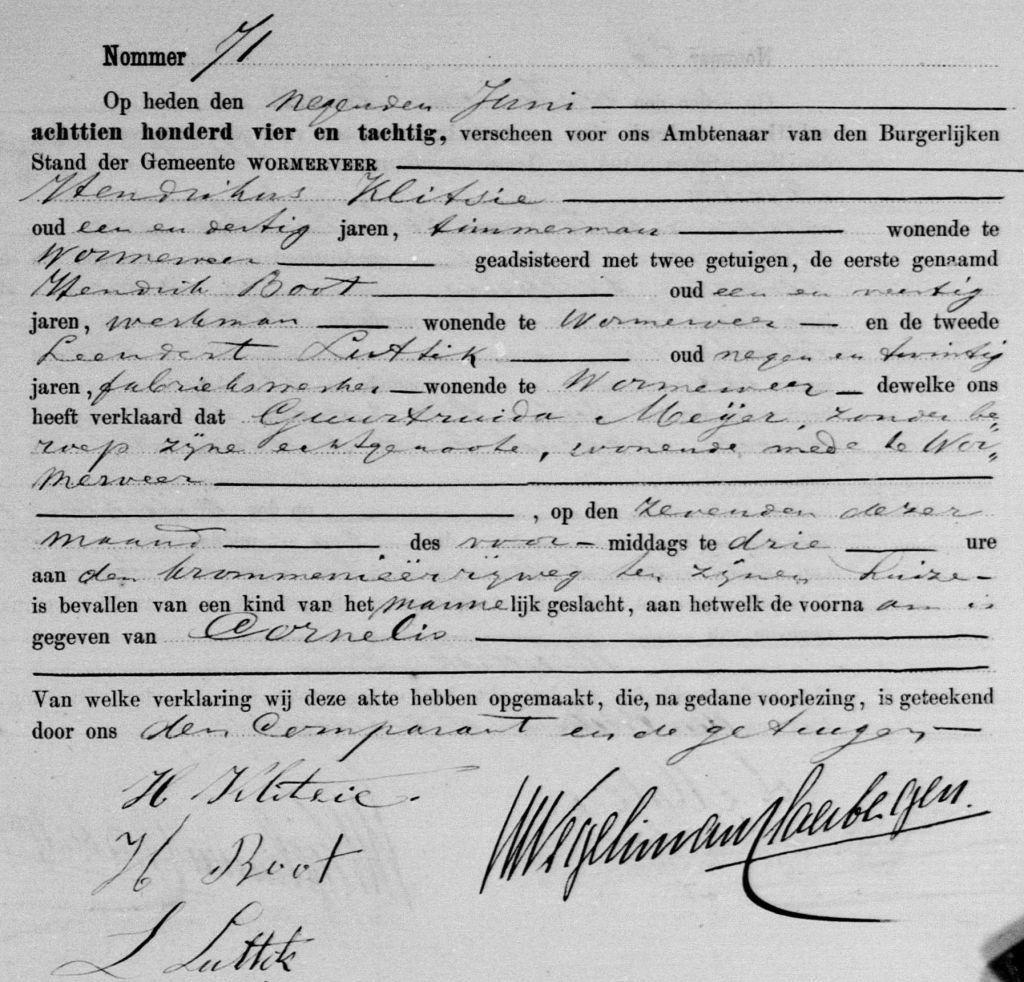 Nommer 71
Op heden den negenden Juni
achttien honderd vier en tachtig, verscheen voor ons Ambtenaar van den Burgerlijken
Stand der Gemeente WORMERVEER
Hendrikus Klitsie
oud een en dertig jaren, timmerman wonende te
Wormerveer geadsisteerd met twee getuigen, de eerste genaamd
Hendrik Boot oud een en veertig
jaren, werkman wonende te Wormerveer en de tweede
Leendert Luttik oud negen en twintig
jaren, fabriekswerker wonende te Wormerveer dewelke ons
heeft verklaard dat Guurtruida Meÿer, zonder be„
roep zÿne echtgenoote, wonende mede te Wor„
merveer
, op den zevenden dezer
maand des voor-middags te drie ure
aan den krommenieërrijweg ten zÿnen huize
is bevallen van een kind van het mannelijk geslacht, aan hetwelk de voorna am is
gegeven van Cornelis
Van welke verklaring wij deze akte hebben opgemaakt, die, na gedane voorlezing, is geteekend
door ons den Comparant en de getuigen
H Klitsie.
H Boot
L Luttik